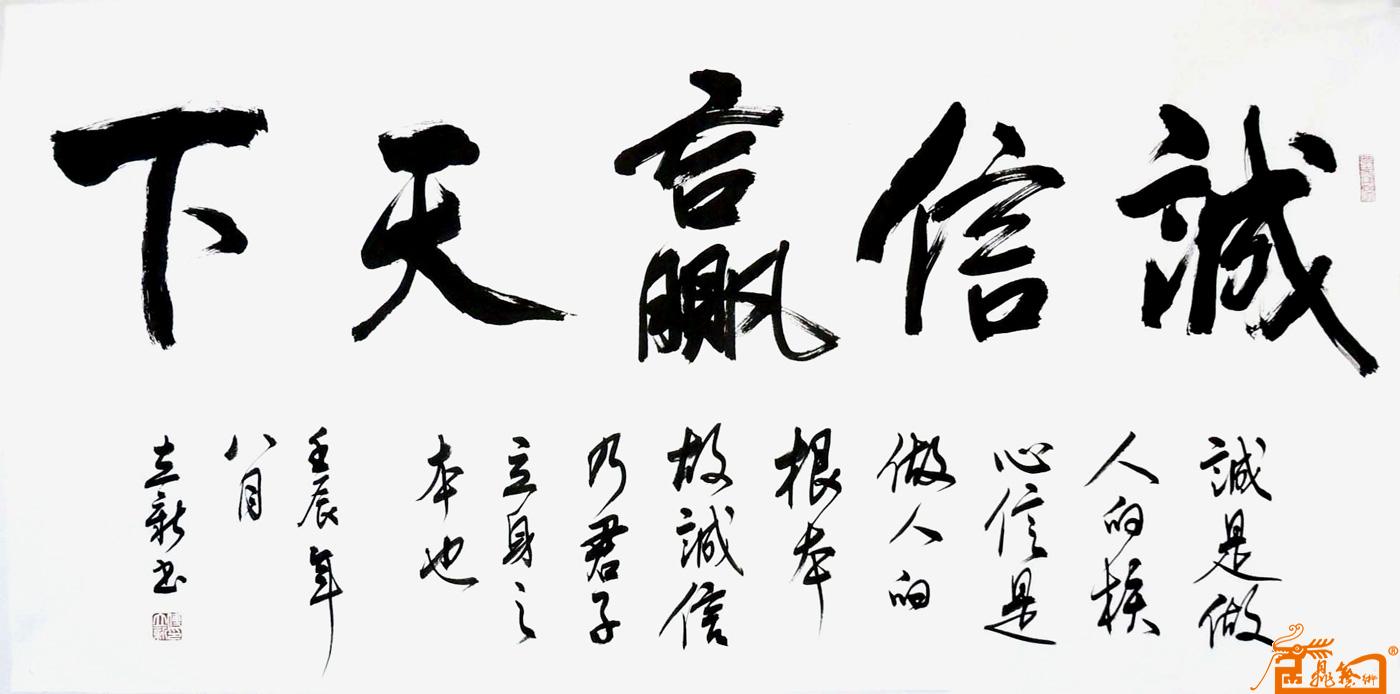 誠信贏天下
誠是做
人的核
心信是
做人的
根本
故誠信
乃君子
立身之
本也
壬辰年
八月
立新书